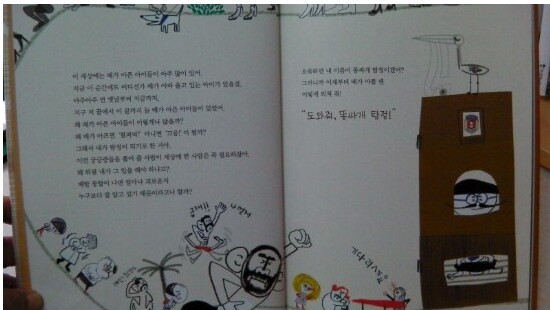 이 세상에는 배가 아픈 아이들이 아주 많이 있어.
지금 이 순간에도 어디선가 배가 아파 울고 있는 아이가 있을걸.
아주아주 먼 옛날부터 지금까지,
지구 저 끝에서 이 끝까지 늘 배가 아픈 아이들이 있었어.
왜 배가 아픈 아이들이 이렇게나 많을까?
왜 배가 아프면
그래서 내가 탐정이 되기로 한 거야.
이런 궁금증들을 풀어 줄 사람이 세상에 한 사람은 꼭 필요하잖아.
왜 하필 내가 그 일을 해야 하냐고?
배탈 설사가 나면 얼마나 괴로운지
누구보다 잘 알고 있기 때문이라고나 할까?
오죽하면 내 이름이 똥싸개 탐정이겠어?
그러니까 이제부터 배가 아플 땐
이렇게 외쳐 줘!
"도와줘, 똥싸개 탐정!"